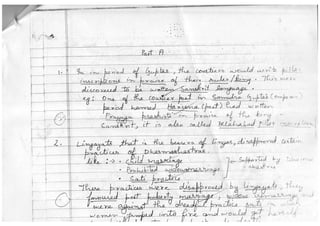 Part A
1. In in period of Guptas, the courtiers would write pillar
inscriptions in praise of their rules/king. This were
discovered to be written Sanskrit language.
eg: One of the courtier poet in Samudra Gupta's (emperor)
period named Harisena (poet) had written
Prayaga prashasti in praise of the king
Sanskrit, it is also called Allahabad Pillar
2. Lingayats that is the bearer of lingas, disapproved certain
practices of Dharmashastras
like :→ • Child marriage
• Prohibited widow remarriage
• Sati practice
supported by
These practices were disapproved by lingayats, they
favoured post puberty marriage, remarriage and
were against the dreadful practice such as
women jumped into fire and would get herself